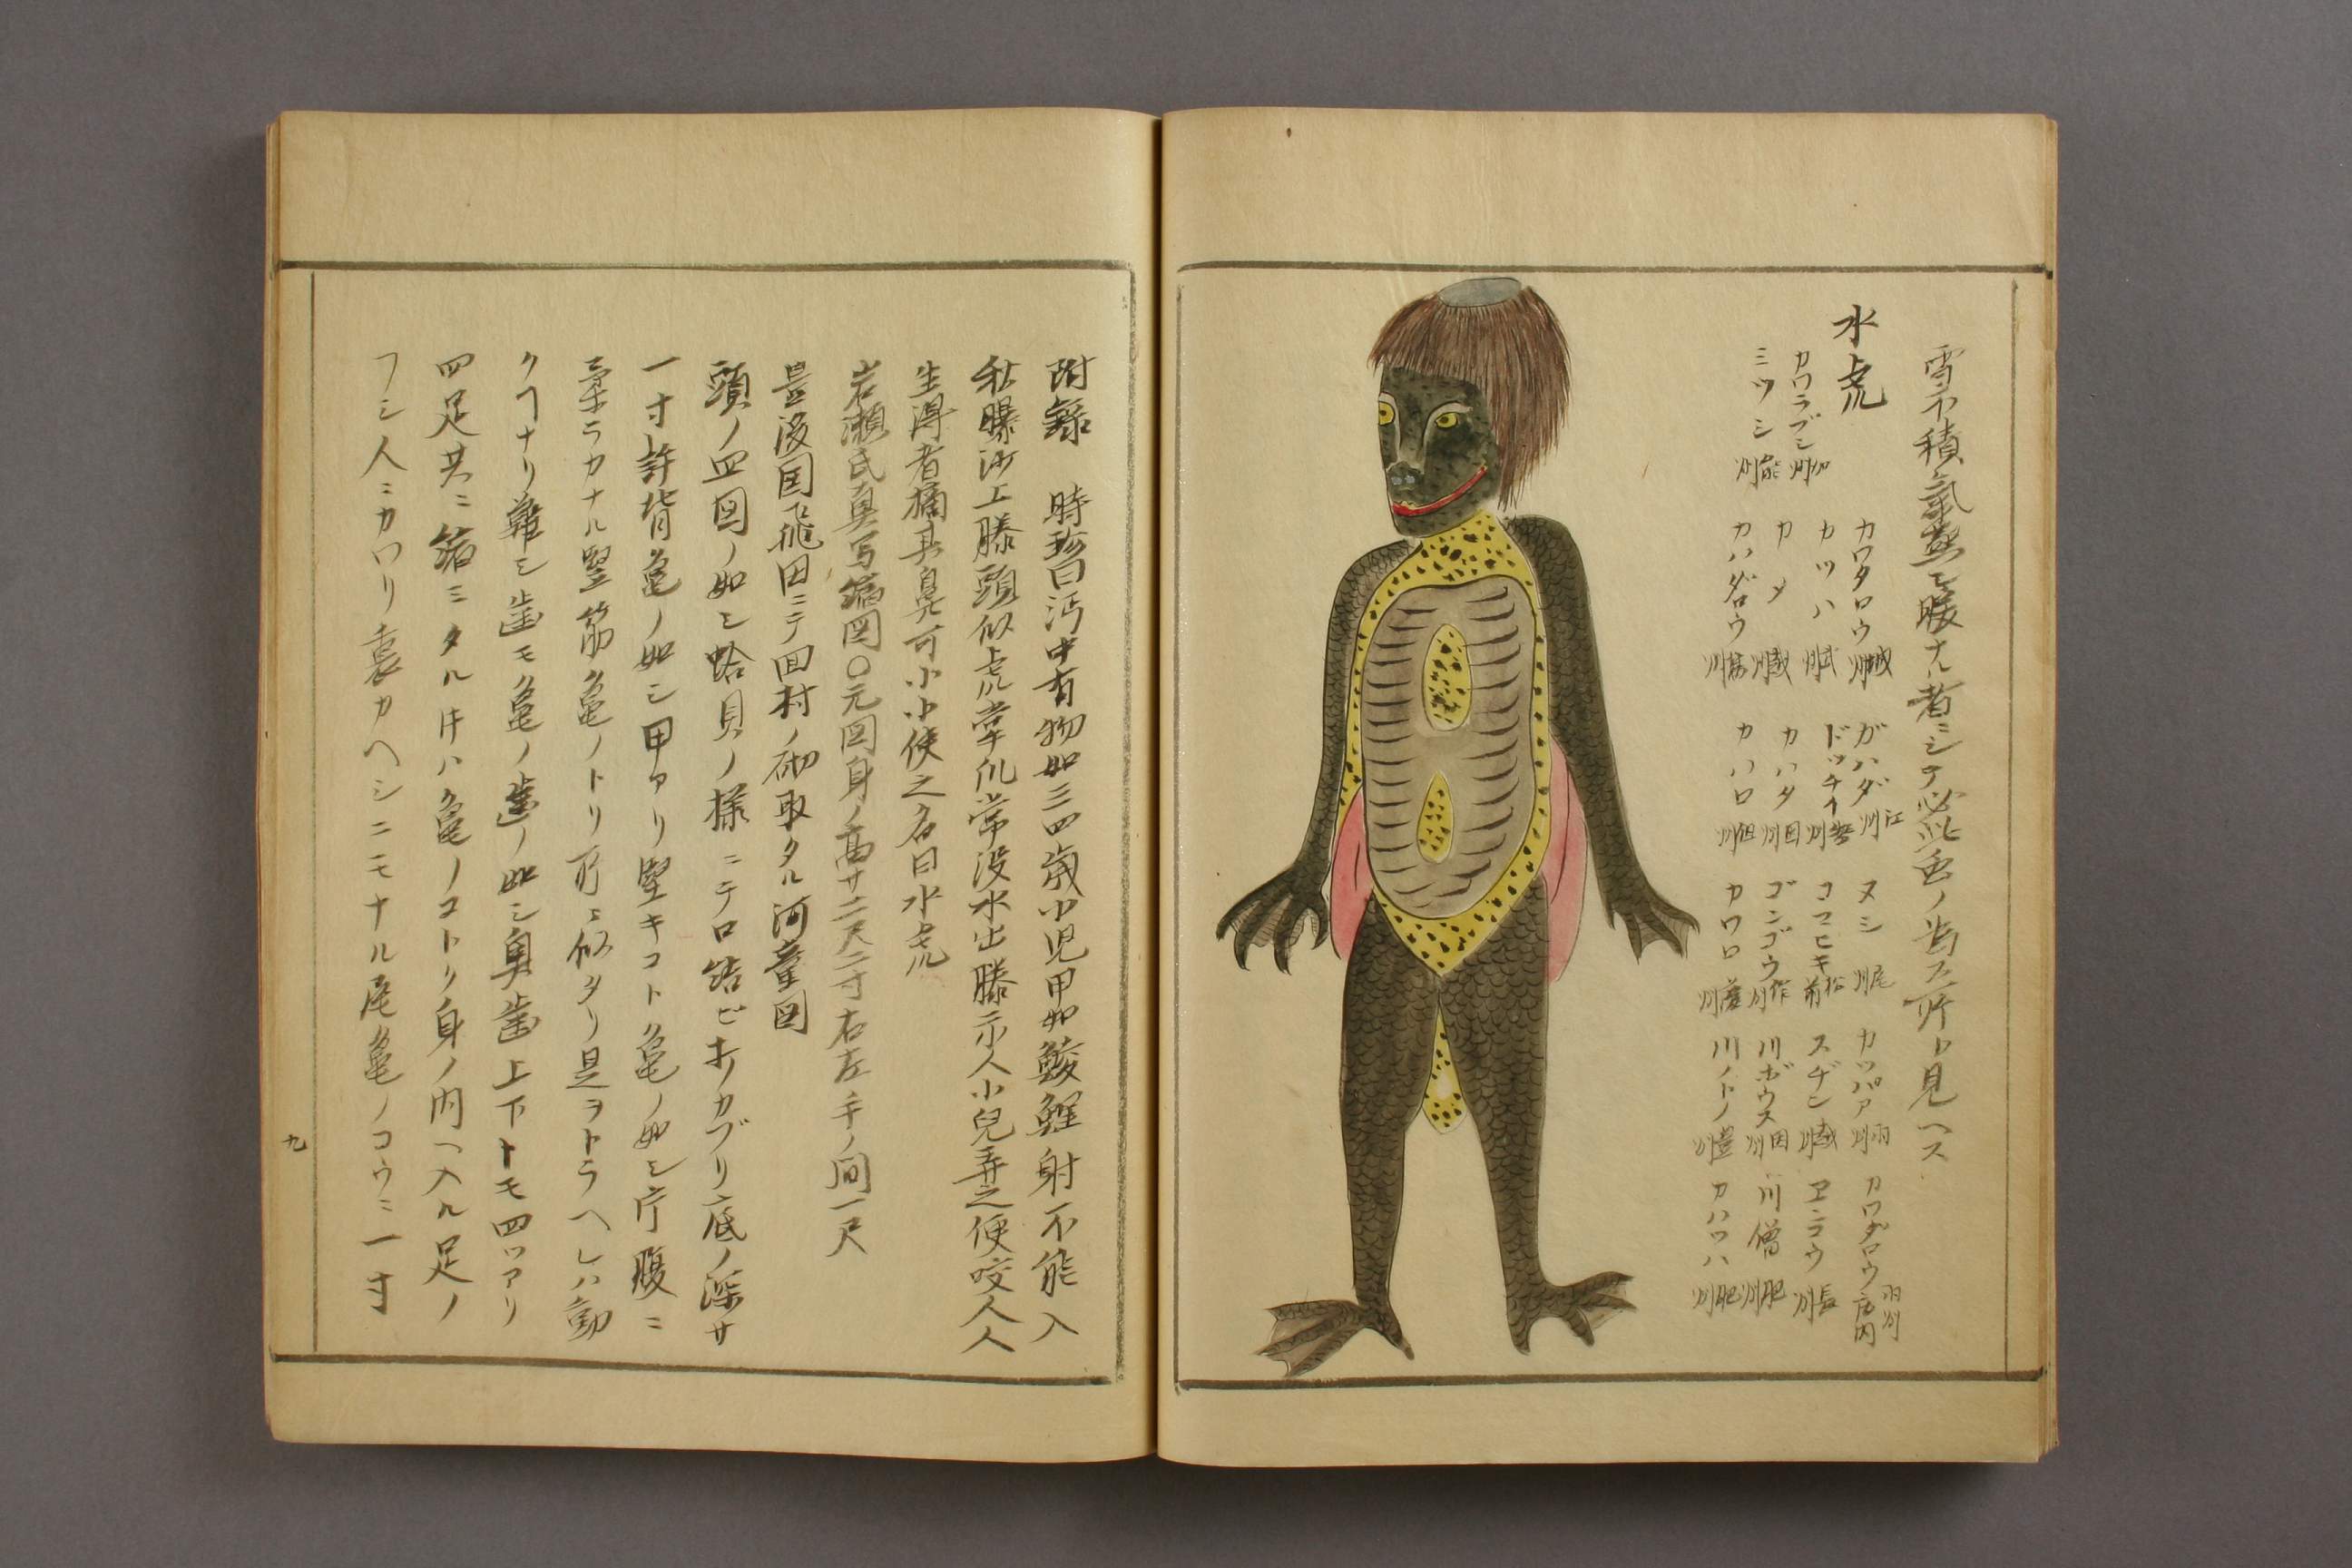 雪不積氣蒸シ暖ナル者ニシテ必此色ノ当ス所ト見ヘス
水虎
カワラブシ 加州
ミツシ 能州
カワタロウ 城州
カツハ 武州
カメ 越州
カハダロウ
ガハダ 江州
ドッチイ
カハタ 因州
カハロ
ヌシ 尾州
コマヒキ 松前
ゴンゴウ 作州
カワロ
カツパア 羽州
スヂン 越州
川ボウス 因州
川ノトノ 豊州
カワダロウ 羽州庄内
ヱンコウ 長州
川僧 肥州
カハツハ 肥州
附錄 時珍曰沔中有物如三四歳小児甲如鯪鯉射不能入
秋曝沙上膝頭似虎掌爪常没水出膝示人小兒弄之便咬人人
生得者摘其鼻可小小使之名曰水虎
岩瀬氏真写縮図〇元図身ノ高サ二尺二寸右左手ノ間一尺
豊後国飛田ニテ田村ノ砌取タル河童図
頭ノ皿図ノ如シ蛤貝ノ様ニテ口結ビオノカブリ底ノ深サ
一寸許背亀ノ如シ甲アリ堅キコト亀ノ如シ片腹ニ
柔ラカナル竪筋亀ノトリ所ニ似タリ是ヲトラヘレハ動
クヘナリ難シ歯モ亀ノ歯ノ如シ奥歯上下トモ四ツアリ
四足共ニ縮ミタル片ハ亀ノコトリ身ノ内ヘ入ル足ノ
フシ人ニカワリ裏カヘシニモナル尾亀ノコウニ一寸
九